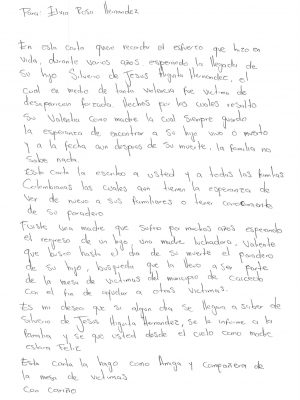 Para: Elvia Rosa Hernandez
En esta carta quiero recordar el esfuerzo que hizo en
vida, durante varios años esperando la llegada de
su hijo Silverio de Jesus Higuita Hernandez, el
cual en medio de tanta violencia fue victima de
desaparicion forzada. Hechos por los cuales resalto
su Valentia como madre la cual siempre guardo
la esperanza de encontrar a su hijo vivo o muerto
y a la fecha aun despues de su muerte, la familia no
sabe nada.
Esta carta la escribo a usted y a todas las familias
Colombianas las cuales aun tienen la esperanza de
ver de nuevo a sus familiares o tener conocimiento
de su paradero
Fuiste una madre que sufrio por muchos años esperando
el regreso de un hijo, una madre luchadora, valiente
que busco hasta el dia de su muerte el paradero
de su hijo, busqueda que la llevo a ser parte
de la mesa de victimas del municipio de Caicedo
con el fin de ayudar a otras victimas.
Es mi deseo que si algun dia se llegara a saber de
Silverio de Jesus Higuita Hernandez, se le informe a la
familia y se que usted desde el cielo como madre
estara Feliz
Esta carta la hago como Amiga y compañera de
la mesa de victimas
Con cariño